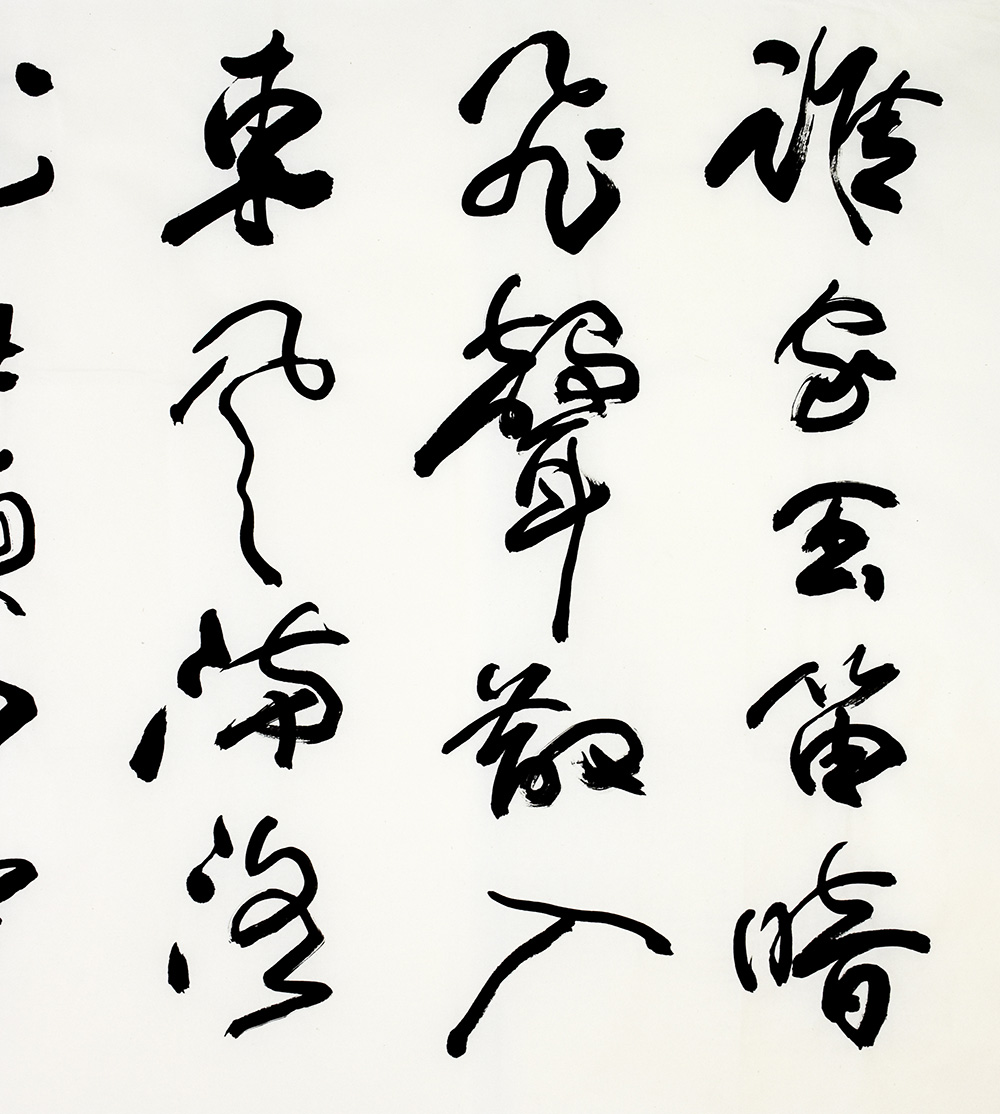 誰家玉笛暗
飛聲散入
東風滿洛